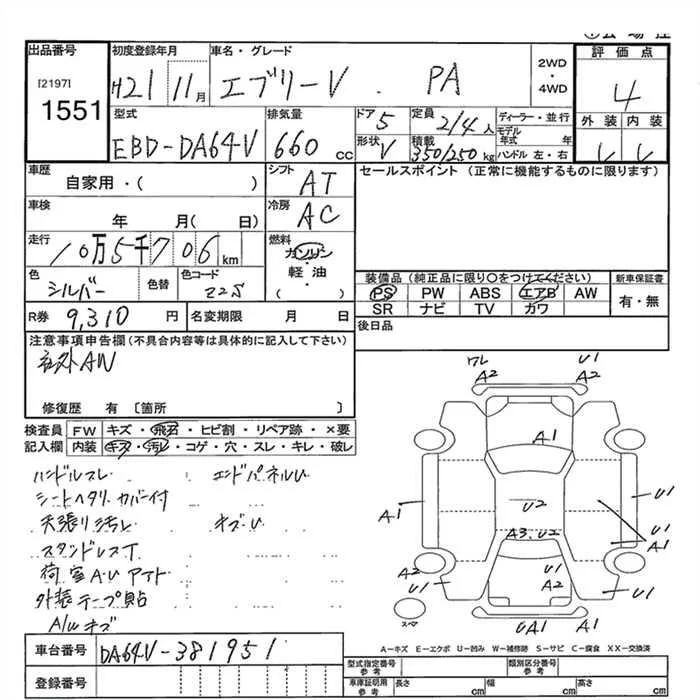 出品番号
[2197]
1551
初度登録年月
H21 11月
車名・グレード
エブリーV . PA
2WD
・
4WD
評価点
4
外装 内装
型式
EBD-DA64V
排気量
660 cc
ドア 5
形状 V
定員 2/4人
積載 350/250kg
ディーラー・並行
モデル
年式 年
ハンドル 左・右
車歴
自家用・( )
シフト
AT
セールスポイント (正常に機能するものに限ります)
車検
年 月( 日)
冷房
AC
走行
10万5千706km
燃料
ガソリン
・
軽油
・
( )
色
シルバー
色替
色コード
Z2S
装備品(純正品に限り○をつけてください)
PS PW ABS エアB AW
SR ナビ TV カワ
新車保証書
有・無
R券 9,310円
名変期限 月 日
後日品
注意事項申告欄(不具合内容等は具体的に記入して下さい)
社外AW
修復歴 有〔箇所 〕
検査員 FW キズ・飛石・ヒビ割・リペア跡・×要
記入欄 内装 キズ・汚れ・コゲ・穴・スレ・キレ・破レ
ハンドルスレ エンドパネルU
シートヘタリ カバー付
天張り汚れ キズU
スタッドレスT
荷室A.U アナ小
外装テープ貼
A/Wキズ
ワレ
A2
U1
A2
A1
U2
A3.U2
A1
U1
U1
A1
A2
U1
U1
A2
U1
スペ
UA1
A1
A-キズ E-エクボ U-凹み W-補修跡 S-サビ C-腐食 XX-交換済
車台番号 DA64V-381951
登録番号
型式指定番号
参考
類別区分番号
参考
車庫証明用
参考
長さ cm
幅 cm
高さ cm